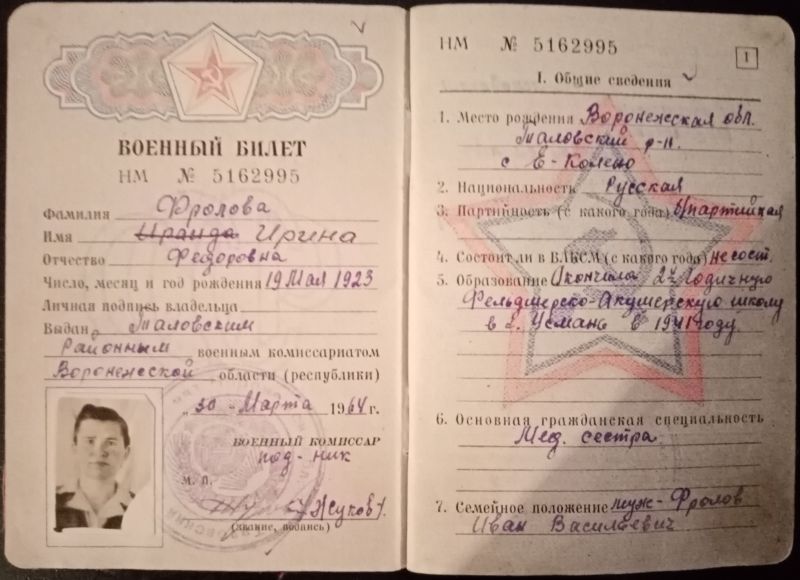 ВОЕННЫЙ БИЛЕТ
НМ № 5162995
Фамилия Фролова
Имя Ираида Ирина
Отчество Федоровна
Число, месяц и год рождения 19 Мая 1923
Личная подпись владельца
Выдан Таловским
районным военным комиссариатом
Воронежской области (республики)
„30 - Марта 1964 г.
ВОЕННЫЙ КОМИССАР
под-ник
М. П.
Жуков
(звание, подпись)
НМ № 5162995
1
I. Общие сведения
1. Место рождения Воронежская обл.
Таловский р-н.
с Е-Колено
2. Национальность Русская
3. Партийность (с какого года) б/партийная
4. Состоит ли в ВЛКСМ (с какого года) не сост.
5. Образование Окончила 2х годичную
Фельдшерско-Акушерскую школу
в г. Усмань в 1941 году.
6. Основная гражданская специальность
Мед. сестра
7. Семейное положение муж - Фролов
Иван Васильевич